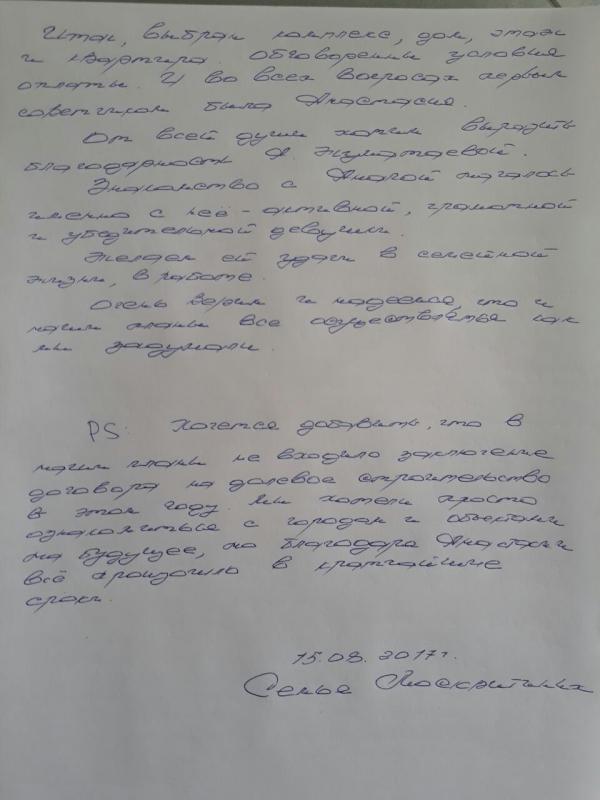 Итак, выбран комплекс, дом, этаж
и квартира. Обговорены условия
оплаты. И во всех вопросах первым
советником была Анастасия.
От всей души хотим выразить
благодарность А.
Знакомство с началось
именно с неё - активной, грамотной
и убедительной девушки.
Желаем ей удачи в семейной
жизни, в работе.
Очень верим и надеемся, что и
наши планы все осуществятся как
мы задумали.
PS: Хочется добавить, что в
наши планы не входило заключение
договора на долевое строительство
в этом году. Мы хотели просто
ознакомиться с городом и объектами
на будущее, но благодаря Анастасии
всё произошло в кратчайшие
сроки.
15.08.2017г.
Семья